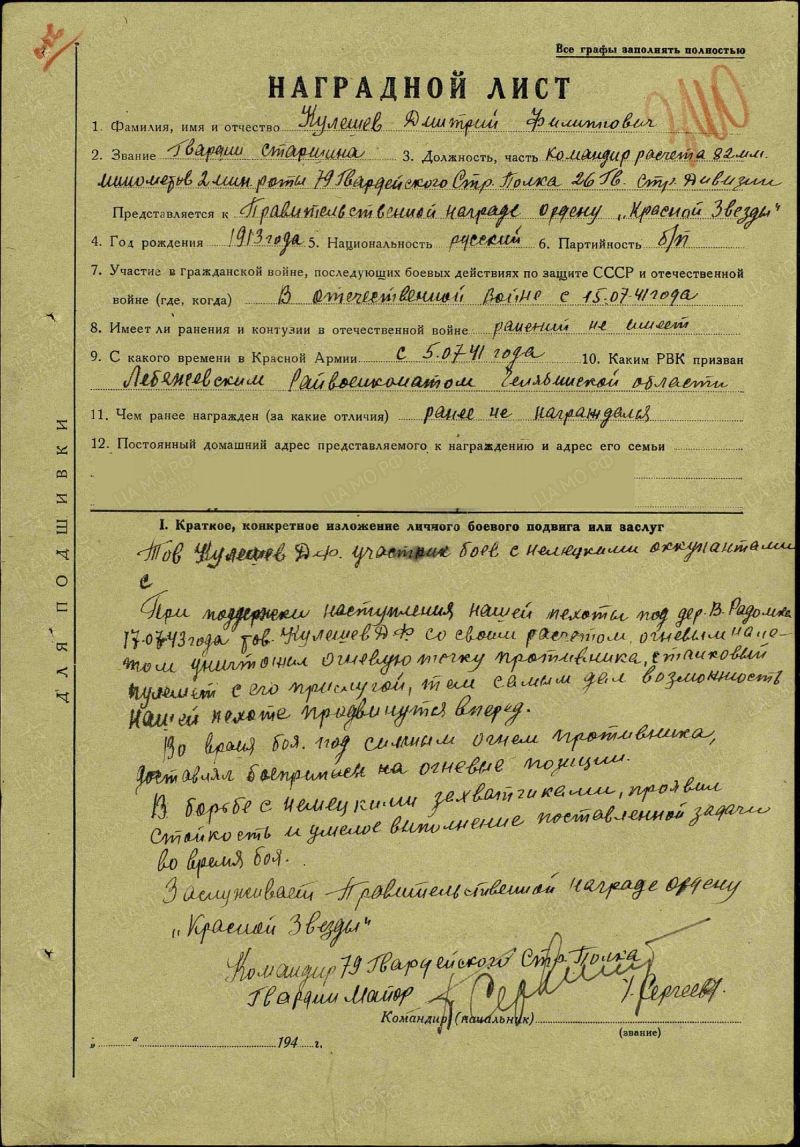 Все графы заполнять полностью
НАГРАДНОЙ ЛИСТ
1. Фамилия, имя и отчество Кулешев Дмитрий Филиппович
2. Звание Гвардии старшина 3. Должность, часть Командир расчета 82 м.м.
минометов 2 мин. роты 79 Гвардейского Стр. Полка 26 Гв. Стр. Дивизии
Представляется к Правительственной награде ордену „Красной Звезды"
4. Год рождения 1913 года 5. Национальность русский 6. Партийность б/п
7. Участие в гражданской войне, последующих боевых действиях по защите СССР и отечественной
войне (где, когда) В отечественной войне с 15.07.41 года
8. Имеет ли ранения и контузии в отечественной войне ранений не имеет
9. С какого времени в Красной Армии с 5.07.41 года 10. Каким РВК призван
Лебяжевским Райвоенкоматом Челябинской области
11. Чем ранее награжден (за какие отличия) ранее не награждался
12. Постоянный домашний адрес представляемого к награждению и адрес его семьи
I. Краткое, конкретное изложение личного боевого подвига или заслуг
Тов Кулешев Д.Ф. участник боев с немецкими оккупантами
с
При поддержки наступления нашей пехоты под дер. В. Радомка
17.07.43 года тов. Кулешев Д Ф со своим расчетом, огневым нале-
том уничтожил огневую точку противника, станковый
пулемет с его прислугой, тем самым дал возможность
нашей пехоте продвинутся вперед.
Во время боя под сильным огнем противника,
доставлял боеприпасы на огневые позиции.
В борьбе с немецкими захватчиками, проявил
стойкость и умелое выполнение поставленной задачи
во время боя.
Заслуживает Правительственной награде ордену
„Красной Звезды"
Командир 79 Гвардейского Стр. Полка
Гвардии Майор Сергеев
Командир (начальник)
(звание)
„ " 194 г.
ДЛЯ ПОДШИВКИ
ЦАМО.РФ